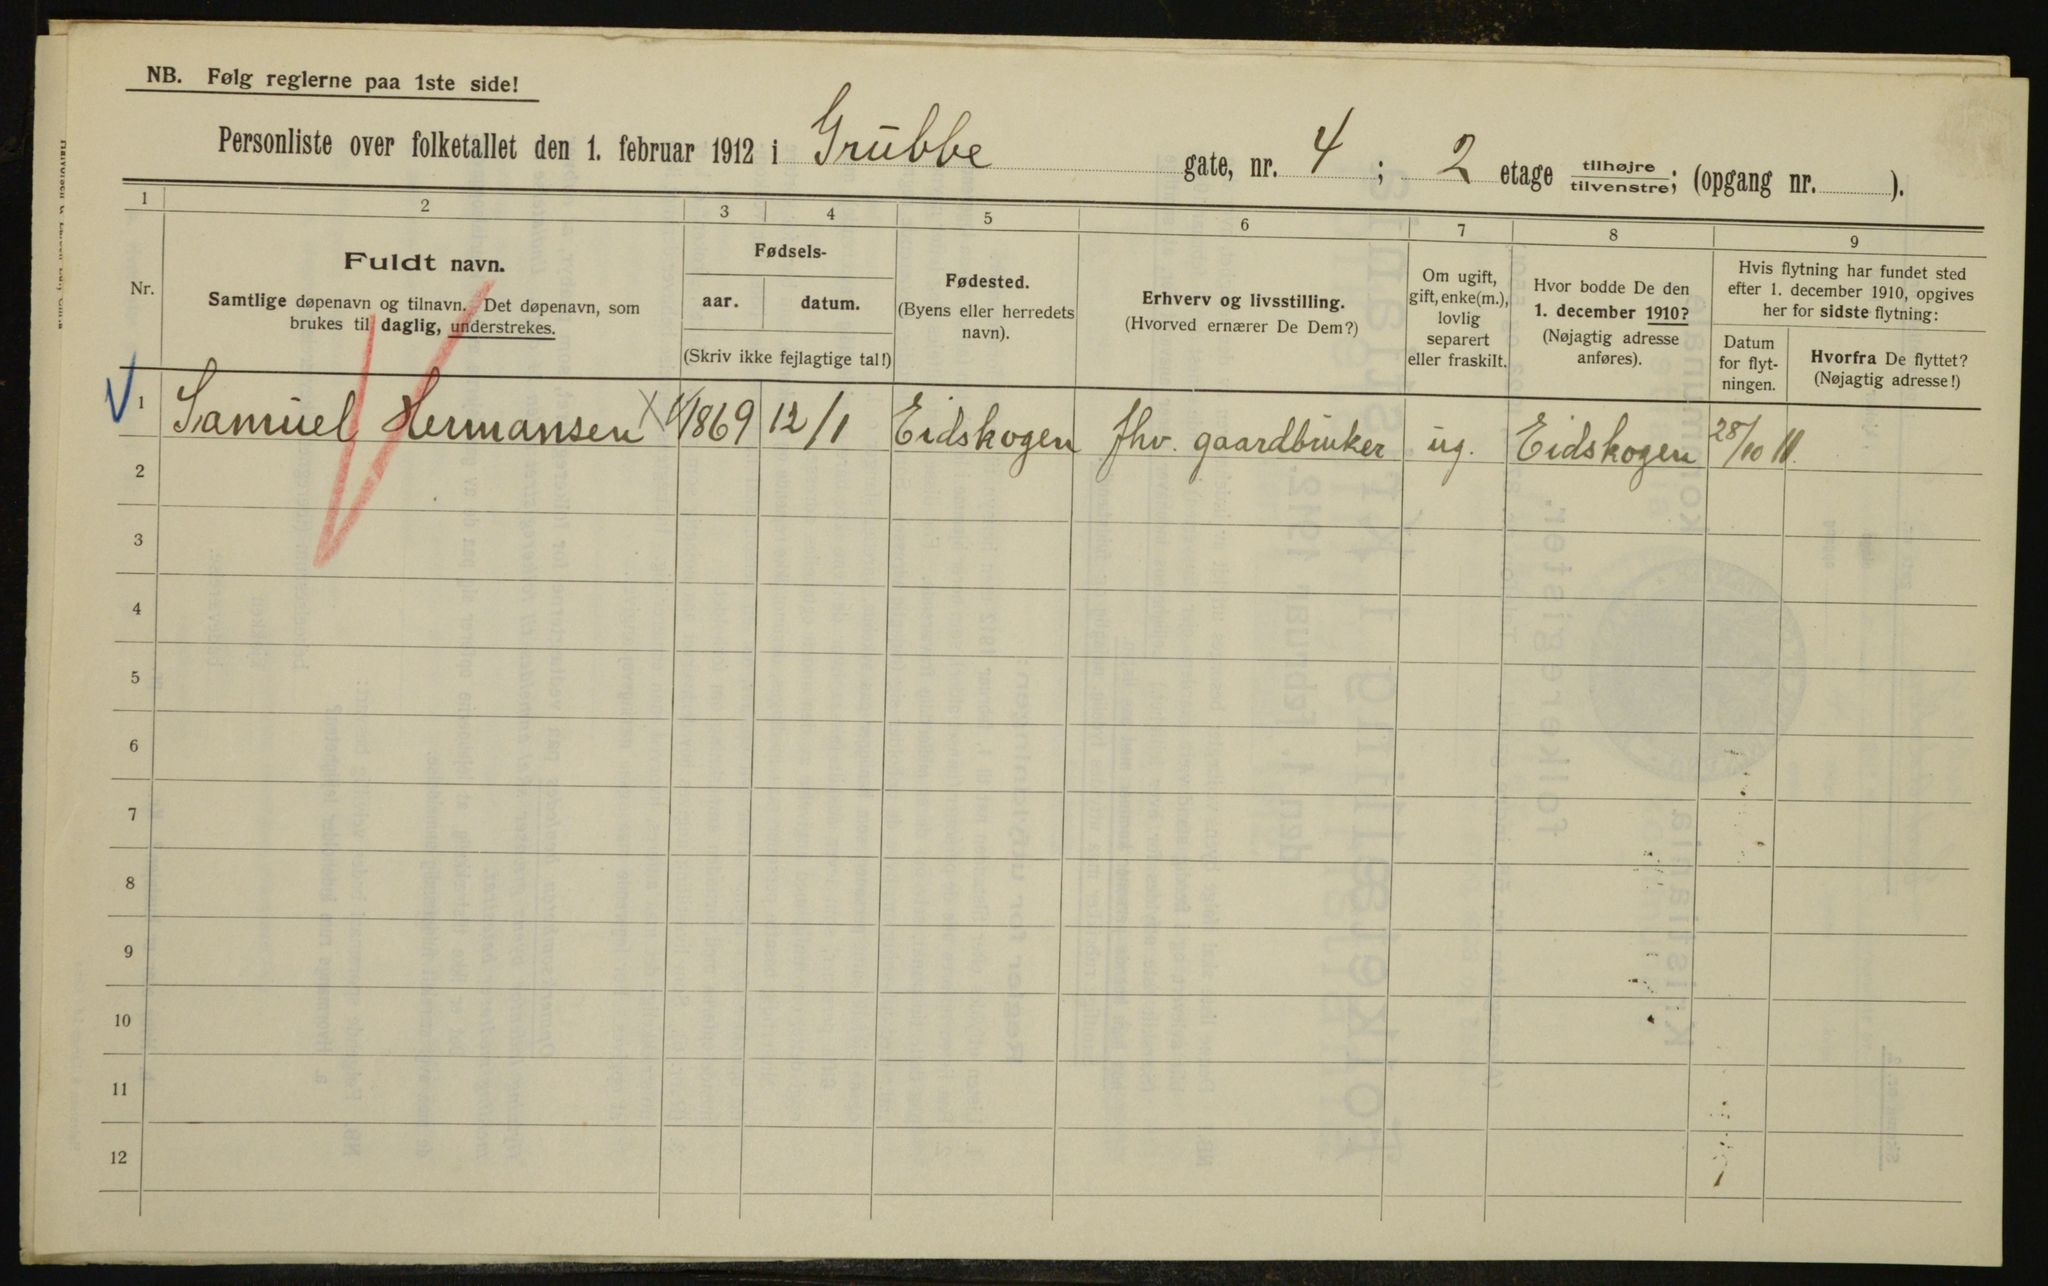 NB. Følg reglerne paa 1ste side!
Personliste over folketallet den 1. februar 1912 i Grubbe gate, nr. 4 ; 2 etage tilhøjre/tilvenstre; (opgang nr. ).
1 2 3 4 5 6 7 8 9
Nr.
Fuldt navn.
Samtlige døpenavn og tilnavn. Det døpenavn, som
brukes til daglig, understrekes.
Fødsels-
aar. datum.
(Skriv ikke fejlagtige tal!)
Fødested.
(Byens eller herredets
navn).
Erhverv og livsstilling.
(Hvorved ernærer De Dem?)
Om ugift,
gift, enke(m.),
lovlig
separert
eller fraskilt.
Hvor bodde De den
1. december 1910?
(Nøjagtig adresse
anføres).
Hvis flytning har fundet sted
efter 1. december 1910, opgives
her for sidste flytning:
Datum
for flyt-
ningen.
Hvorfra De flyttet?
(Nøjagtig adresse!)
1 Samuel Hermansen 1869 12/1 Eidskogen fhv. gaardbruker ug. Eidskogen 28/10 11.
2
3
4
5
6
7
8
9
10
11
12